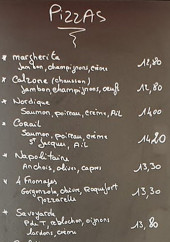 PIZZAS
* margherite
Jambon, champignons, crème 12,80
* Calzone (chausson)
Jambon champignons, oeuf 12,80
* Nordique
Saumon, poireau, crème, Ail 14,00
Saumon, poireau, crème
St Jacques, Ail 14,20
* Napolitaine
Anchois, olives, capres 13,30
* 4 Fromages
Gorgonzola, chèvre, Roquefort
Mozzarelle 13,30
* Savoyarde
P.de T, reblochon, oignons
lardons, crème 13,80